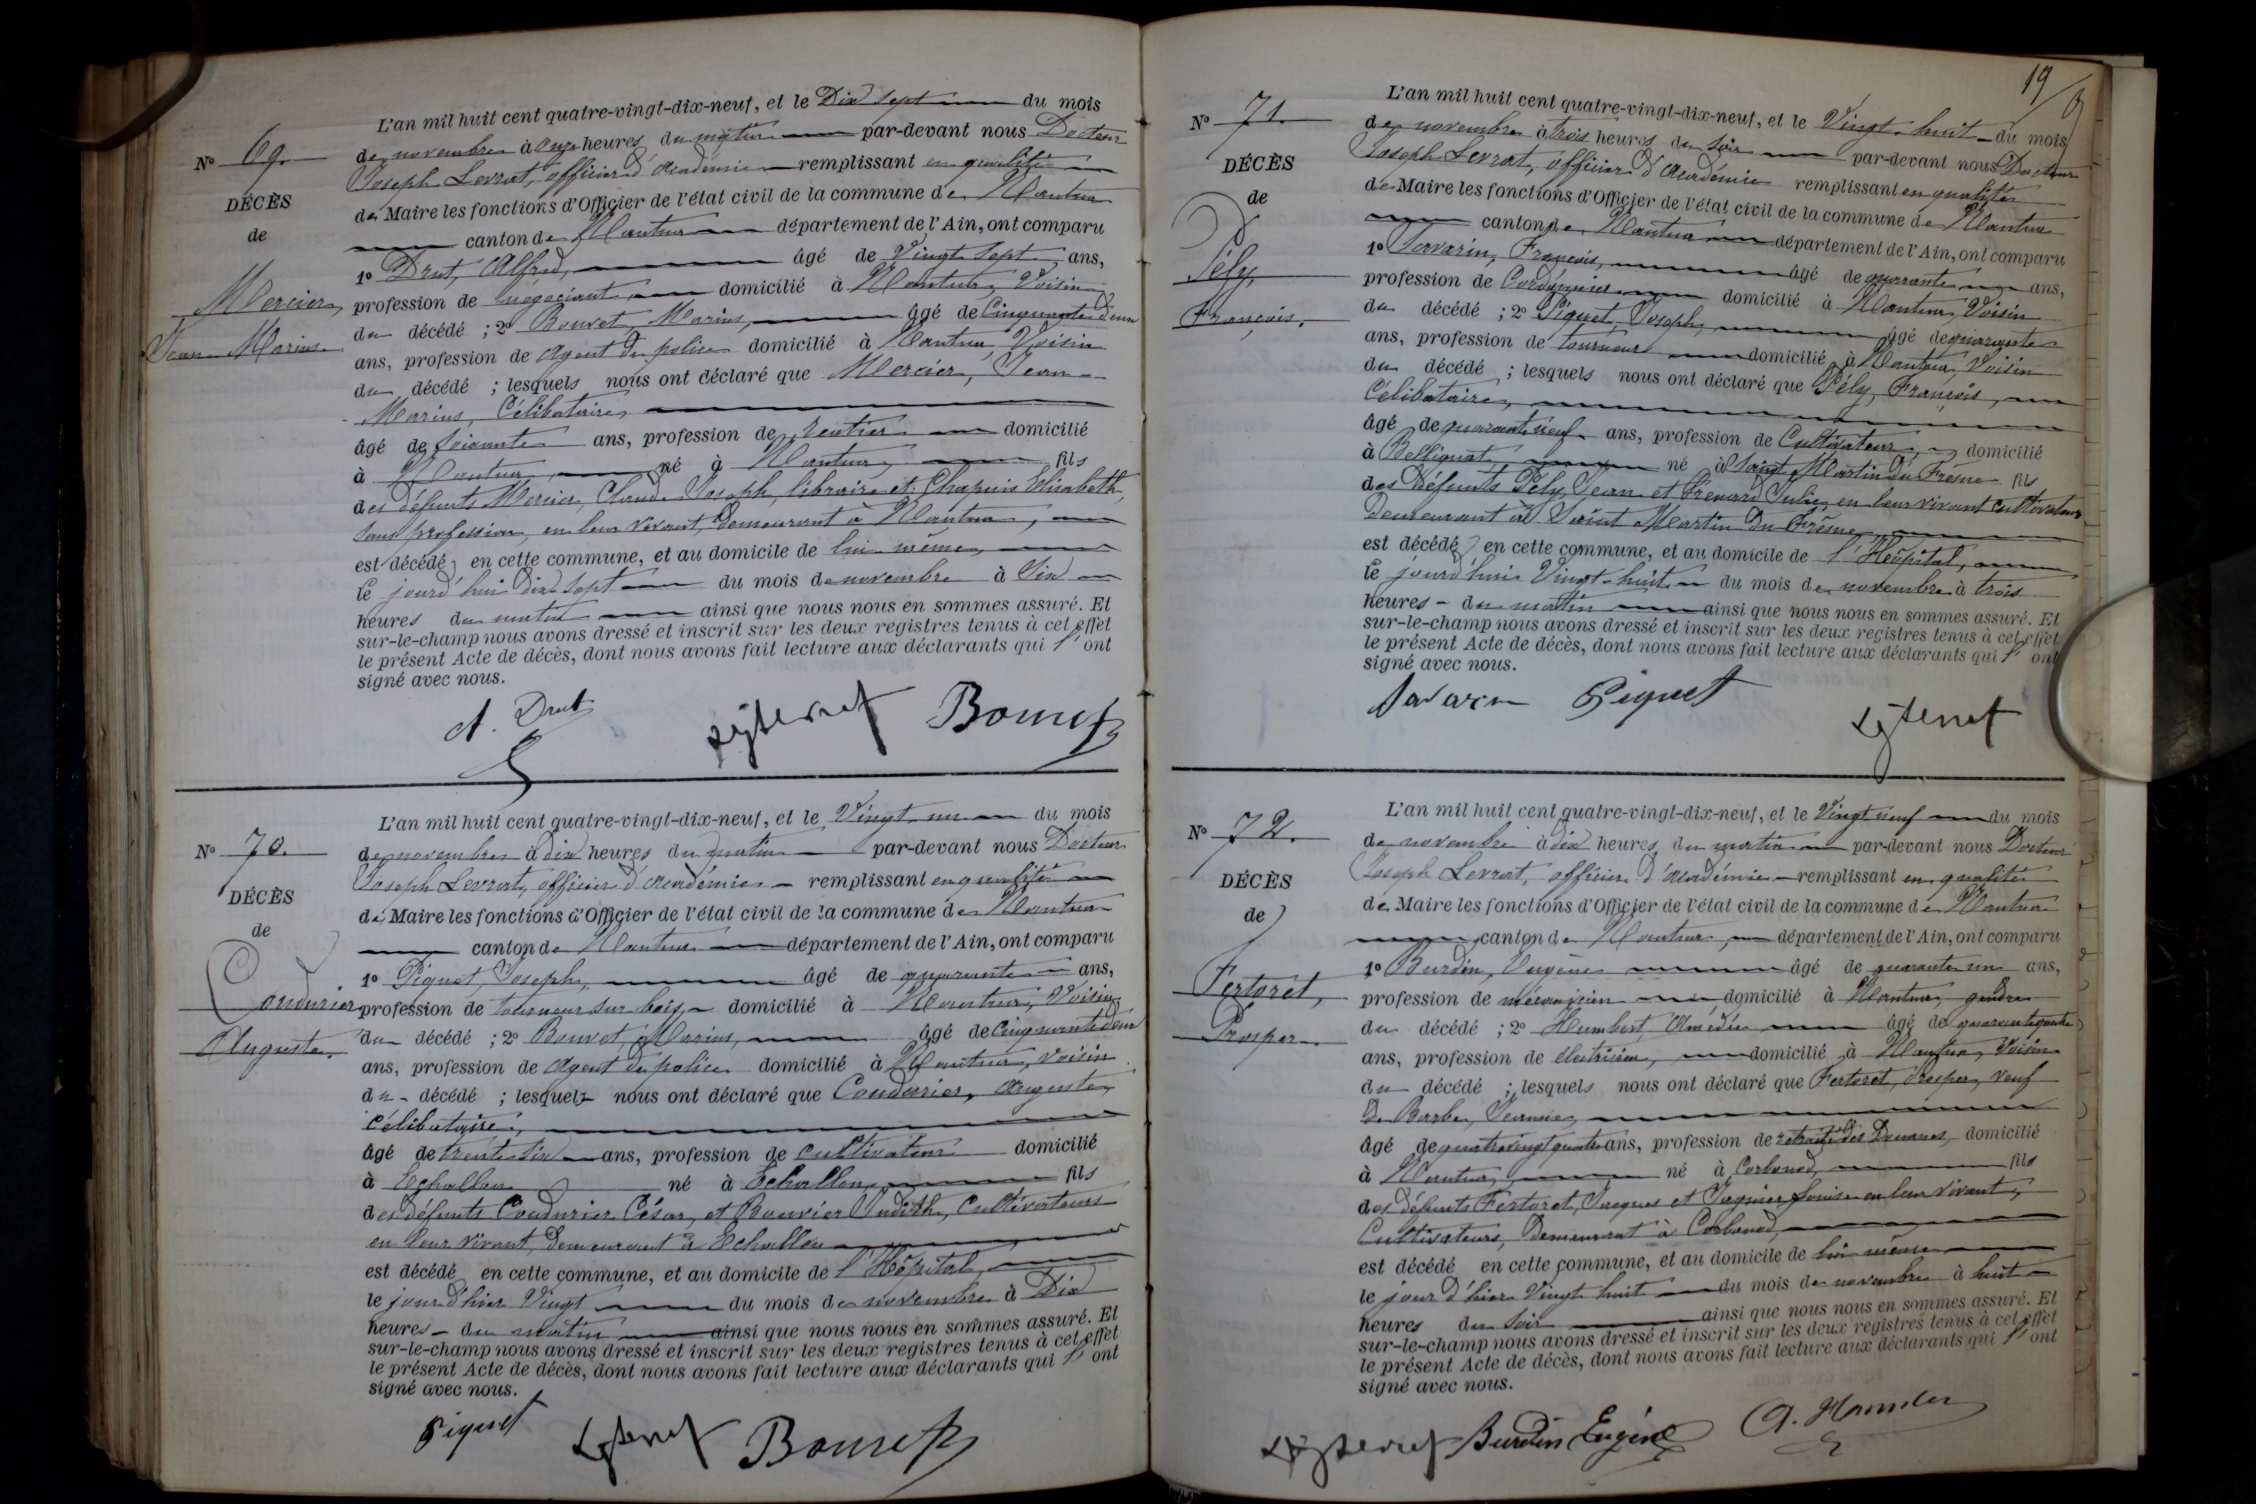 L'an mil huit cent quatre-vingt-dix-neuf, et le Dix sept du mois
N° 69.
de novembre à onze heures du matin par-devant nous Docteur
Joseph Levrat, officier d'académie remplissant en qualité
DÉCÈS
de Maire les fonctions d'Officier de l'état civil de la commune de Nantua
de
canton de Nantua département de l'Ain, ont comparu
1° Drut, Alfred, âgé de Vingt sept ans,
Mercier,
profession de négociant, domicilié à Nantua, Voisin
du décédé ; 2° Bouvet, Marius, âgé de Cinquante deux
Jean Marius.
ans, profession de agent de police domicilié à Nantua, Voisin
du décédé ; lesquels nous ont déclaré que Mercier, Jean
Marius, Célibataire,
âgé de soixante ans, profession de rentier domicilié
à Nantua, né à Nantua, fils
des défunts Mercier, Claude Joseph, libraire et Chapuis Elisabeth,
sans profession, en leur vivant, demeurant à Nantua,
est décédé en cette commune, et au domicile de lui même,
le jourd'hui Dix sept du mois de novembre à Six
heures du matin ainsi que nous nous en sommes assuré. Et
sur-le-champ nous avons dressé et inscrit sur les deux registres tenus à cet effet
le présent Acte de décès, dont nous avons fait lecture aux déclarants qui l'ont
signé avec nous.
A. Drut
Bouvet
L'an mil huit cent quatre-vingt-dix-neuf, et le Vingt un du mois
N° 70.
de novembre à dix heures du matin par-devant nous Docteur
Joseph Levrat, officier d'académie remplissant en qualité
DÉCÈS
de Maire les fonctions d'Officier de l'état civil de la commune de Nantua
de
canton de Nantua département de l'Ain, ont comparu
1° Piquet, Joseph, âgé de quarante ans,
Coudurier
profession de tourneur sur bois domicilié à Nantua, Voisin
du décédé ; 2° Bouvet, Marius, âgé de Cinquante deux
Auguste.
ans, profession de agent de police domicilié à Nantua, Voisin
du décédé ; lesquels nous ont déclaré que Coudurier, Auguste,
célibataire,
âgé de trente six ans, profession de cultivateur domicilié
à Echallon né à Echallon, fils
des défunts Coudurier César, et Bouvier Judith, Cultivateurs
en leur vivant, demeurant à Echallon
est décédé en cette commune, et au domicile de l'Hôpital,
le jour d'hier Vingt du mois de novembre à Dix
heures du matin ainsi que nous nous en sommes assuré. Et
sur-le-champ nous avons dressé et inscrit sur les deux registres tenus à cet effet
le présent Acte de décès, dont nous avons fait lecture aux déclarants qui l'ont
signé avec nous.
Piquet
Bouvet
19
L'an mil huit cent quatre-vingt-dix-neuf, et le Vingt huit du mois
N° 71.
de novembre à trois heures du soir par-devant nous Docteur
DÉCÈS
Joseph Levrat, officier d'académie remplissant en qualité
de
de Maire les fonctions d'Officier de l'état civil de la commune de Nantua
canton de Nantua département de l'Ain, ont comparu
1° Savarin, François, âgé de quarante ans,
Pély,
profession de Cordonnier domicilié à Nantua, Voisin
François,
du décédé ; 2° Piquet, Joseph, âgé de quarante
ans, profession de tourneur domicilié à Nantua, Voisin
du décédé ; lesquels nous ont déclaré que Pély, François,
Célibataire,
âgé de quarante neuf ans, profession de Cultivateur, domicilié
à Bellignat né à Saint Martin du Frêsne fils
des Défunts Pély, Jean et Julie, en leur vivant cultivateurs
Demeurant à Saint Martin Du Frêsne,
est décédé en cette commune, et au domicile de l'Hôpital,
le jourd'hui Vingt-huit du mois de novembre à trois
heures du matin ainsi que nous nous en sommes assuré. Et
sur-le-champ nous avons dressé et inscrit sur les deux registres tenus à cet effet
le présent Acte de décès, dont nous avons fait lecture aux déclarants qui l'ont
signé avec nous.
Savarin Piquet
L'an mil huit cent quatre-vingt-dix-neuf, et le Vingt neuf du mois
N° 72.
de novembre à dix heures du matin par-devant nous Docteur
Joseph Levrat, officier d'académie remplissant en qualité
DÉCÈS
de Maire les fonctions d'Officier de l'état civil de la commune de Nantua
de
canton de Nantua, département de l'Ain, ont comparu
1° Burdin, Eugène âgé de quarante un ans,
Fertoret,
profession de mécanicien domicilié à Nantua, gendre
Prosper
du décédé ; 2° Humbert, Amédée âgé de quarante quatre
ans, profession de électricien, domicilié à Nantua, Voisin
du décédé ; lesquels nous ont déclaré que Fertoret, Prosper, veuf
De Barbe, Jeannie,
âgé de quatre vingt quatre ans, profession de retraité des Douanes, domicilié
à Nantua, né à Corbonod, fils
des défunts Fertoret, Jacques et Louise en leur vivant,
Cultivateurs, Demeurant à Corbonod,
est décédé en cette commune, et au domicile de lui même
le jour d'hier Vingt huit du mois de novembre à huit
heures du soir ainsi que nous nous en sommes assuré. Et
sur-le-champ nous avons dressé et inscrit sur les deux registres tenus à cet effet
le présent Acte de décès, dont nous avons fait lecture aux déclarants qui l'ont
signé avec nous.
Burdin Eugène